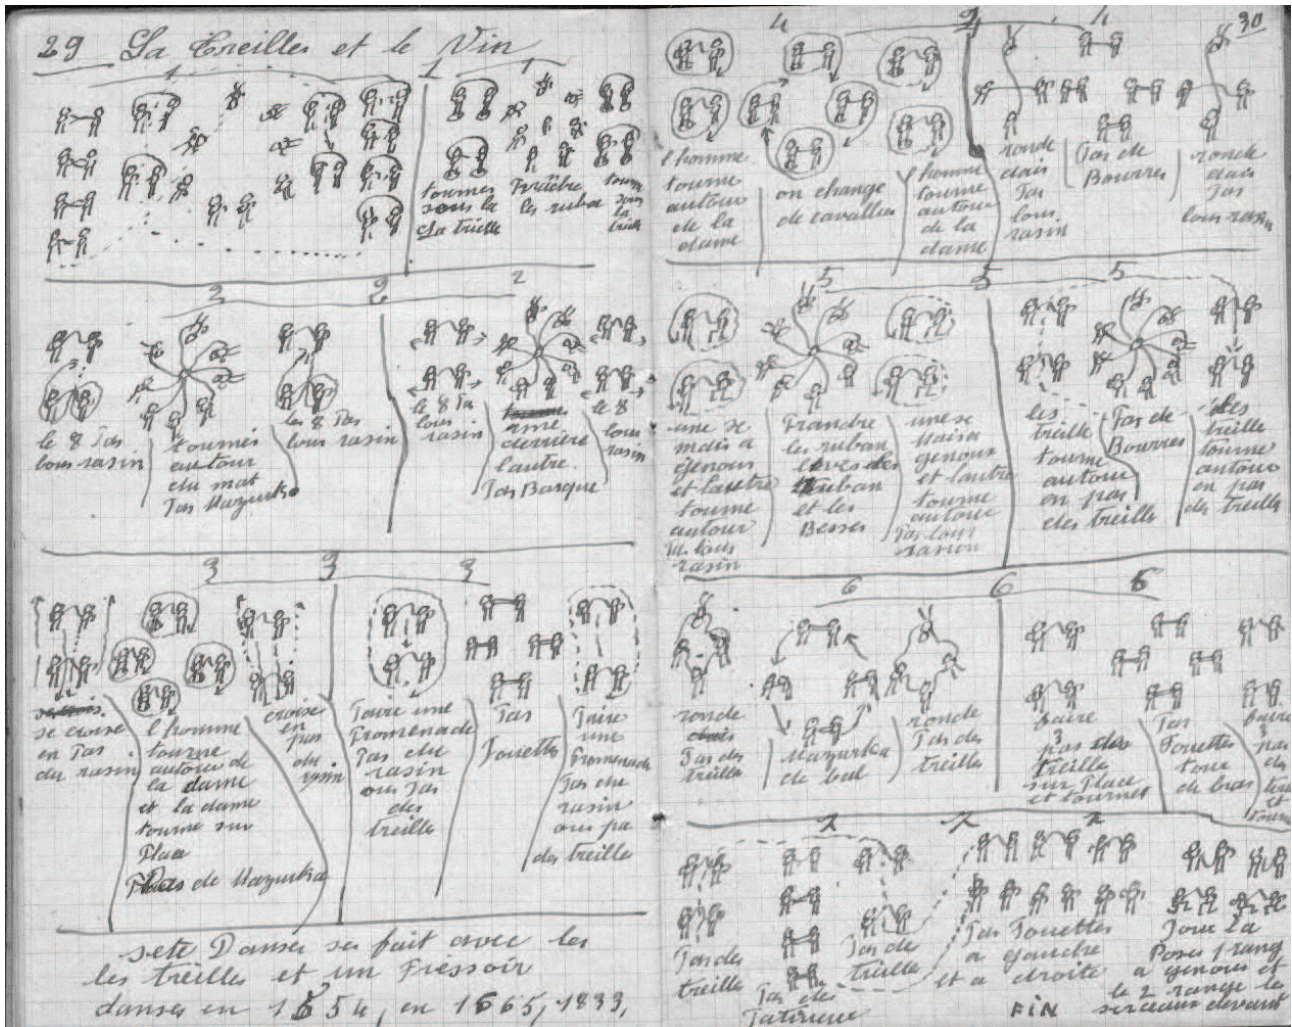 29 La Treilles et le Vin
1 1 1
tournes
sous la
La trielle
les ruban
tourn
sous
la
2 2 2
le 8 Pas
lous rasin
tournes
autour
du mat
Pas Mazurka
les 8 Pas
lous rasin
le 8 Pa
lous
rasin
derrière
l'autre.
Pas Basque
le 8
lous
rasin
3 3 3
se croise
en Pas
du rasin
l'homme
tourne
autour de
la dame
et la dame
tourne sur
Place
Pas de Mazurka
croise
en
pas
du
rasin
Faire une
Promenade
Pas du
rasin
ou Pas
des
treille
Pas
Fouettes
Faire
une
Promenade
Pas du
rasin
ou pa
des treille
sete Danse se fait avec les
les treille et un Pressoir
danses en 1554, en 1665, 1833,
30
4 4 4
l'homme
tourne
autour
de la
dame
on change
de cavallier
l'homme
tourne
autour
de la
dame
ronde
dais
Pas
lous
rasin
Pas de
Bourres
ronde
dais
Pas
lous rasin
5 5 5
une se
mais a
genous
et l'autre
tourne
autour
Pas lous
rasin
Prandre
les ruban
leves des
ruban
et les
Besses
une se
maisa
genous
et l'autre
tourne
autour
Pas lous
rasion
les
treille
tourne
autour
en pas
des treille
Pas de
Bourres
des
treille
tourne
autour
en pas
des treille
6 6 6
ronde
Pas des
treille
Mazurka
de bal
ronde
Pas des
treille
faire
3
pas des
treille
sur Place
et tournes
Pas
Fouettes
tour
de bras
faire
3
pas
des
treille
et
tourne
7 7 7
Pas des
treille
Pas des
Patineur
Pas de
treille
Pas Fouettes
a gauche
et a droite
Pour la
Poses 1 rang
a genous et
le 2 range les
serceaux devant
FIN